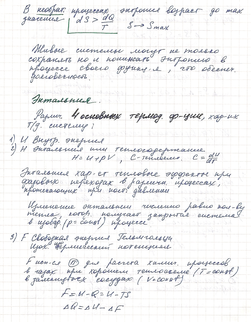 В необрат. процессе энтропия возраст до max
значения dS > dQ/T S → Smax
Живые системы могут не только
сохранять но и понижать энтропию в
процессе своего функц-я, что обеспеч.
Энтальпия
Различ. 4 основных термод. ф-ции, хар-их
т/д. систему:
1) U Внутр. энергия
2) H Энтальпия или теплосодержание
H = U + pV, C-теплоем. C =
Энтальпия хар-ет тепловые эффекты при
фазовых переходах и различн. процессах,
протекающих при пост. давлении
Изменение энтальпии численно равно кол-ву
тепла, котор. получает закрытая система
в изобар. (p = const) процессе
3) F Свободная энергия Гельмгольца
Изох. термический потенциал
F исп-ся для расчета химич. процессов
в парах при хорошем теплообмене (T = const)
в замкнутых сосудах (V = const)
F = U - Q = U - TS
ΔQ = ΔU - ΔF